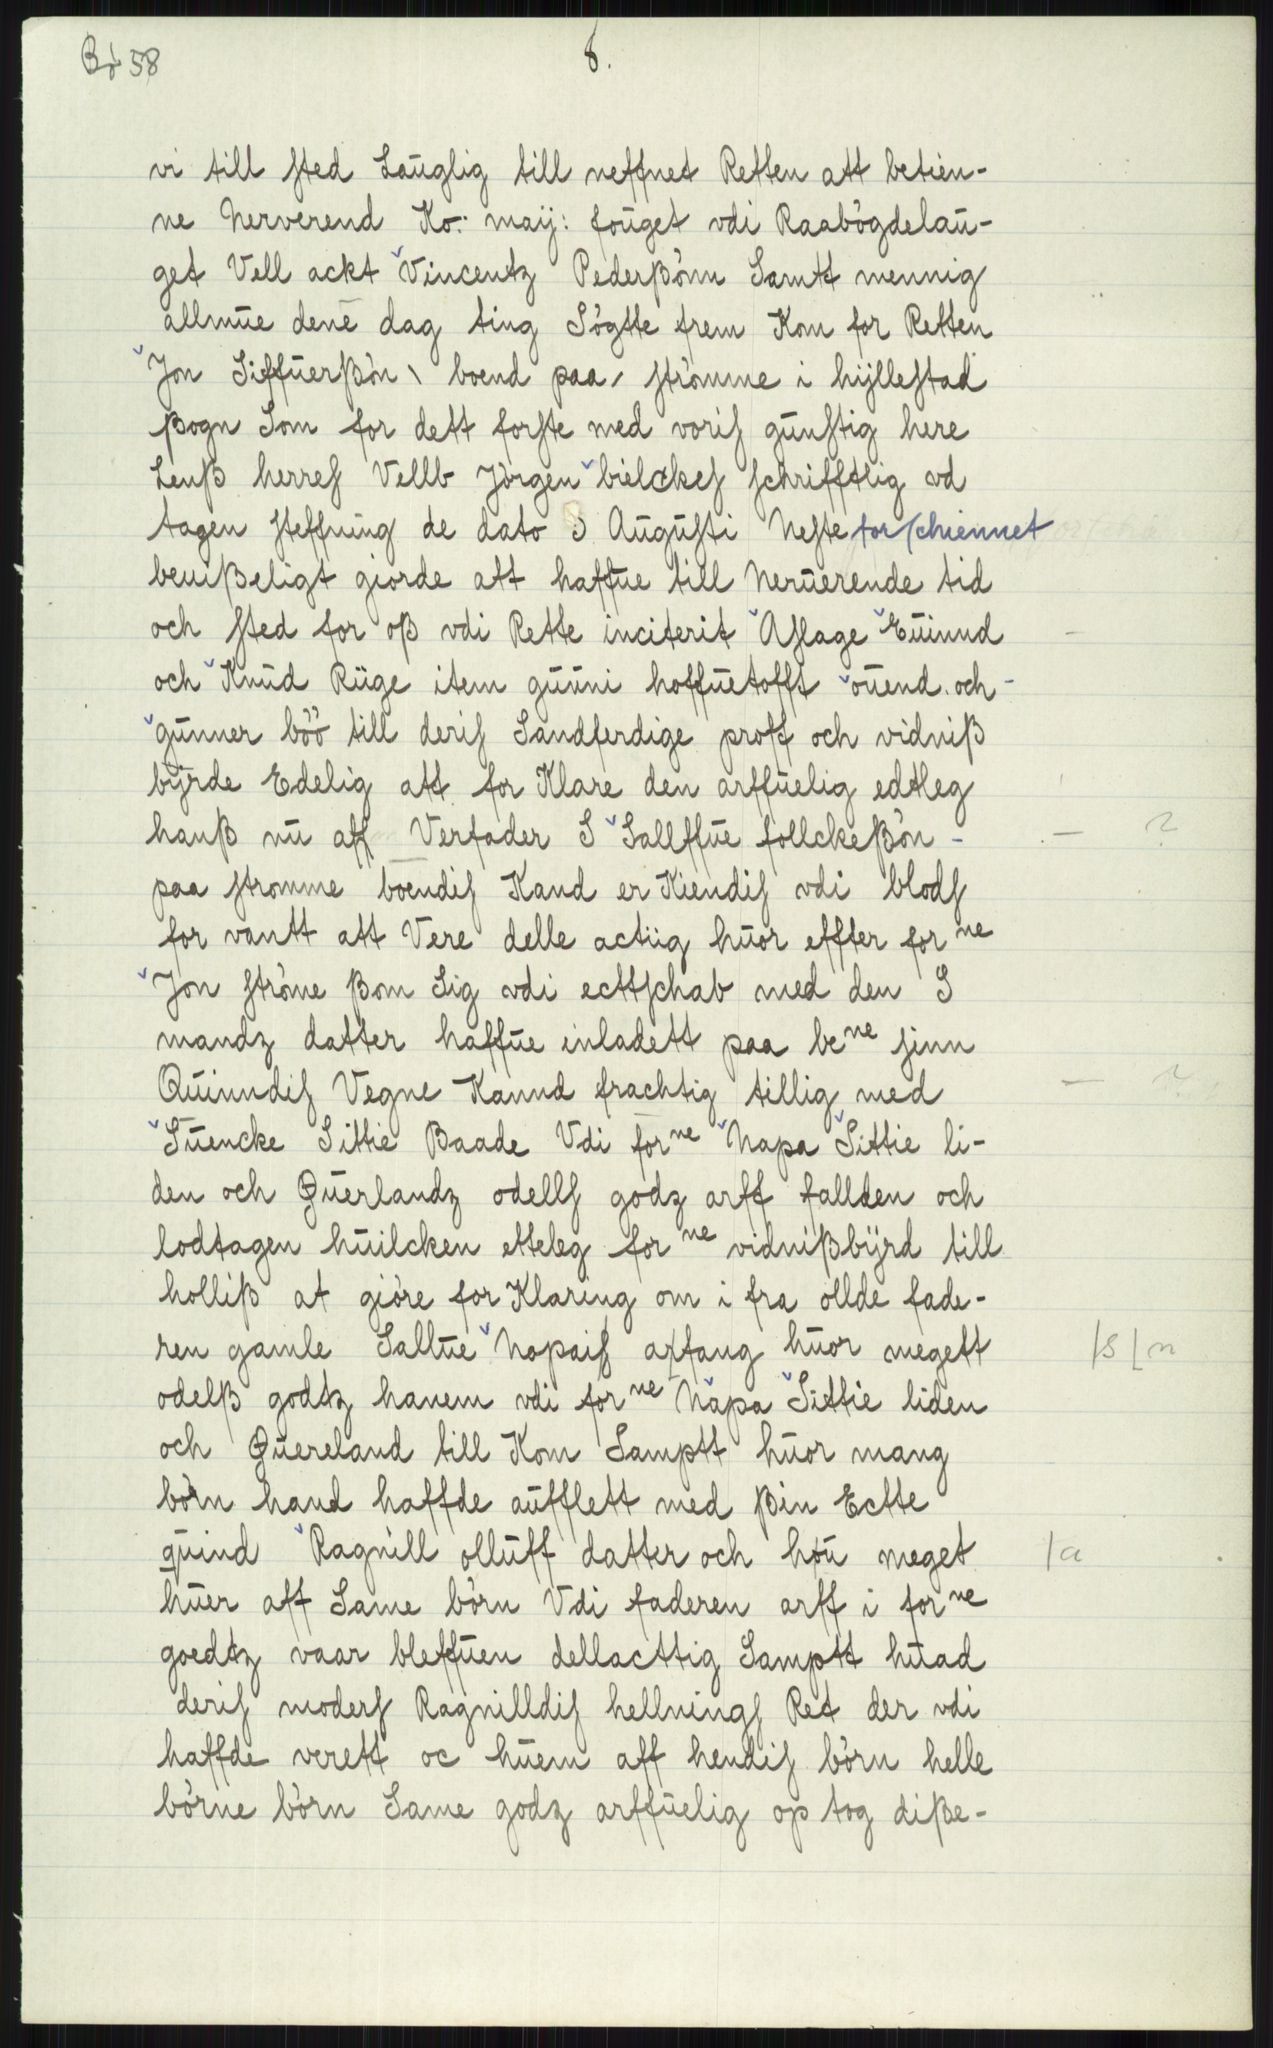 Bø 58
8.
vi till sted Lauglig till neffnet Retten att betien-
ne Nerverend Ko: maÿ: fouget vdi Raabøgdelau-
get Vell ackt Vincentz Pederßønn Samtt mennig
allmue dene dag ting Søgtte frem Kom for Retten
Jon Siffuerßøn \ boend paa / strømme i hÿllestad
ßogn Som for dett forste med voris gunstig here
Lenß herres Vellb Jørgen bielckes schrifftlig vd
tagen steffning de dato 3 Augusti Neste forschiennet
beuißeligt giorde att haffue till Neruerende tid
och sted for oß vdi Rette inciterit Aslage Euinnd
och Knud Rüge item guuni hoffuetofft ouend och
gunner böö till deris Sandferdige proff och vidniß
bÿrde Edelig att for Klare den arffuelig edtleg
hanß nu aff Verfader S Sallffue follckeßøn -
paa stromme boendis Kand er Kiendis vdi blods
for vantt att Vere delle actüg huor effter for ne
Jon strøme ßom Sig vdi ecttschab med den S
mandz datter haffue inladett paa be ne sinn
Quinndis Vegne Kannd frachtig tillig med
Suencke Sittie Baade Vdi for ne Napa Sittie li-
den och Querlandz odells godz arff fallden och
lodtagen huilcken etteleg for ne vidnißbÿrd till
holliß at giøre for Klaring om i fra ollde fade-
ren gamle Sallue Napais arfang huor megett |s |n
odelß godtz hanem vdi for ne Napa Sittie liden
och Quereland till Kom Samptt huor mang
børn hand haffde aufflett med ßin Ectte
quind Ragnill olluff datter och hou meget |a
huer aff Same børn Vdi faderen arff i for ne
goedtz vaar bleffuen dellacttig Samptt huad
deris moders Ragnilldis hellnings Ret der vdi
haffde verett oc huem aff hendis børn helle
børne børn Same godz arffuelig op tog diße-